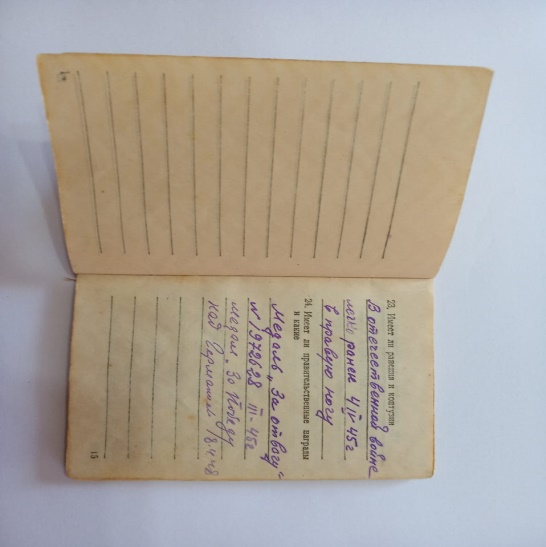 23. Имеет ли ранения и контузии
В отечественной войне
легко ранен 4/IV-45г
в правую ногу
24. Имеет ли правительственные награды
и какие
Медаль „За отвагу“
N 1972698 III-45г
медаль За Победу
над Германией
15